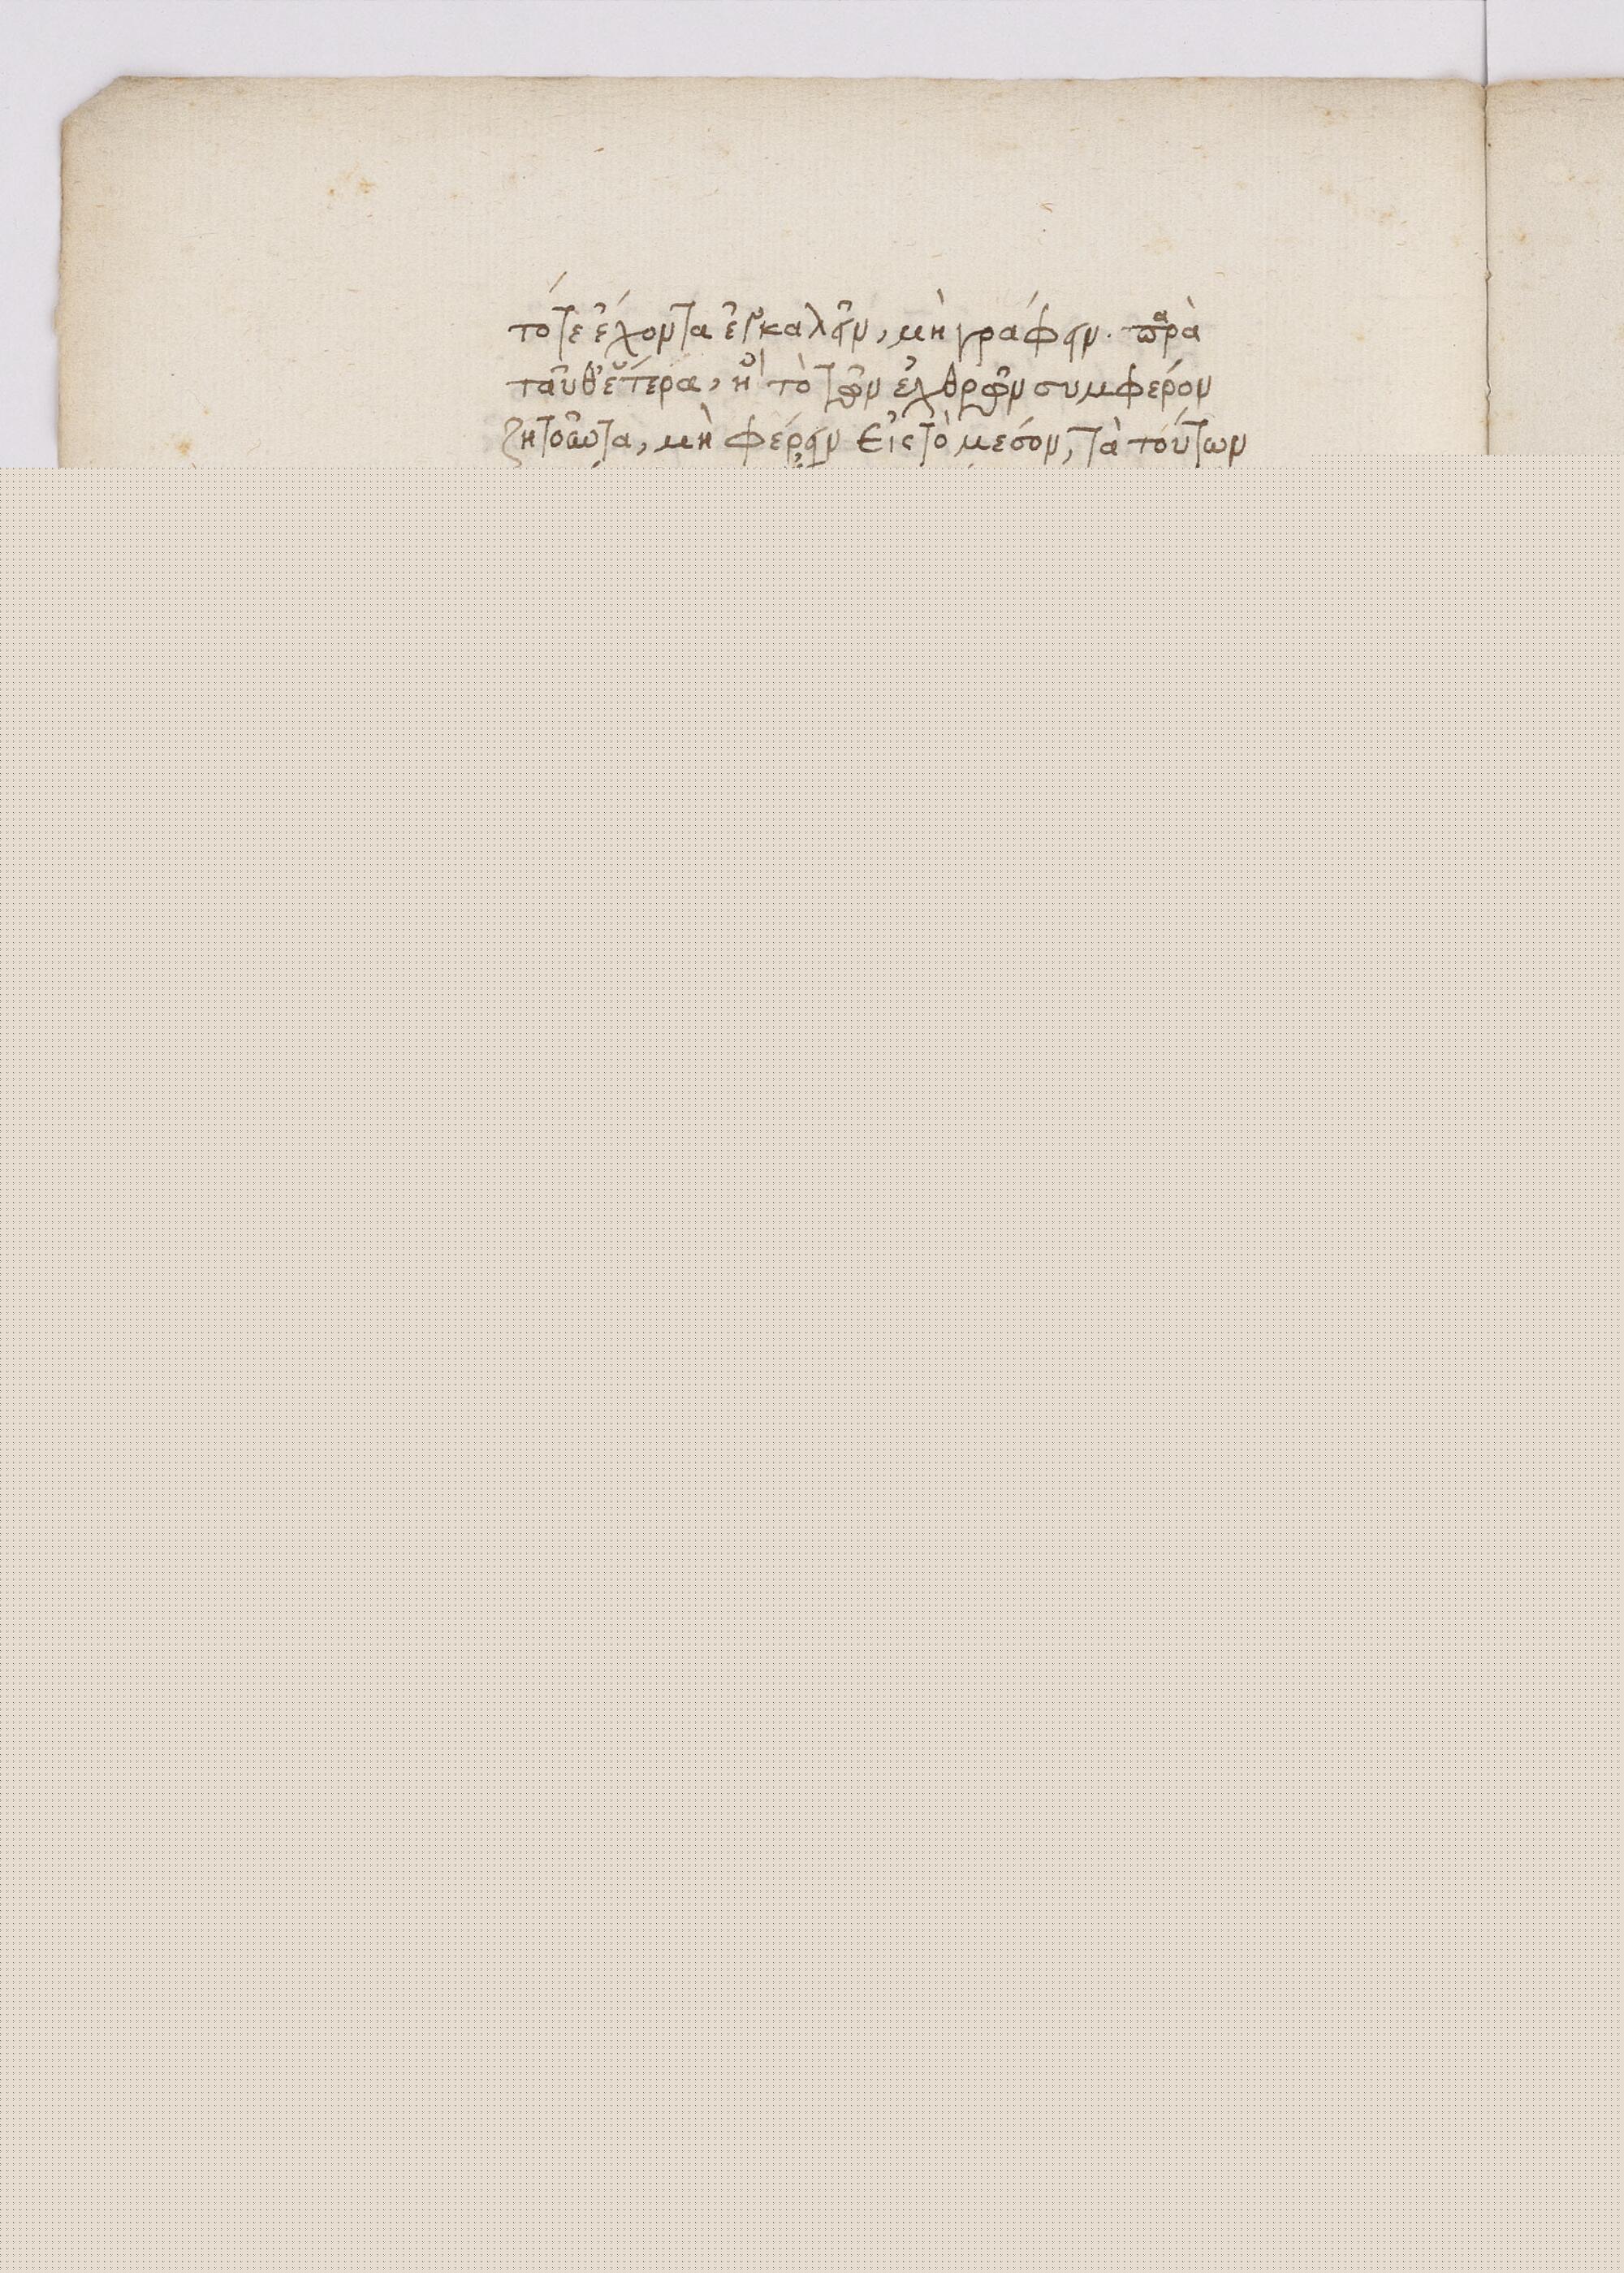 τότε ἔχοντα ἐγκαλεῖν, μὴ γράφειν. παρὰ
ταῦθ' ἕτερα, ἢ τὸ τῶν ἐχθρῶν συμφέρον
ζητοῦντα, μὴ φέρειν εἰς τὸ μέσον, τὰ τούτων